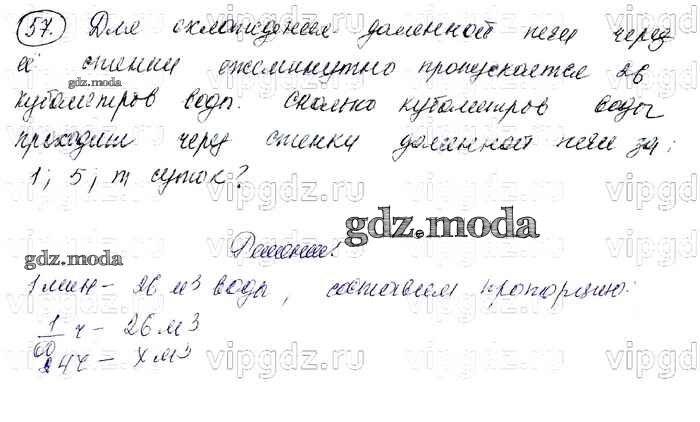 57. Для охлаждения доменной печи через
её стенки ежеминутно пропускается 26
gdz.moda
кубометров воды. Сколько кубометров воды
проходит через стенки доменной печи за:
1; 5; m суток?
gdz.moda
Решение:
gdz.moda
1 мин - 26 м3 воды, составляем пропорцию:
1/60 ч - 26 м3
24ч - x м3
vipgdz.ru vipgdz.ru vipgdz.ru